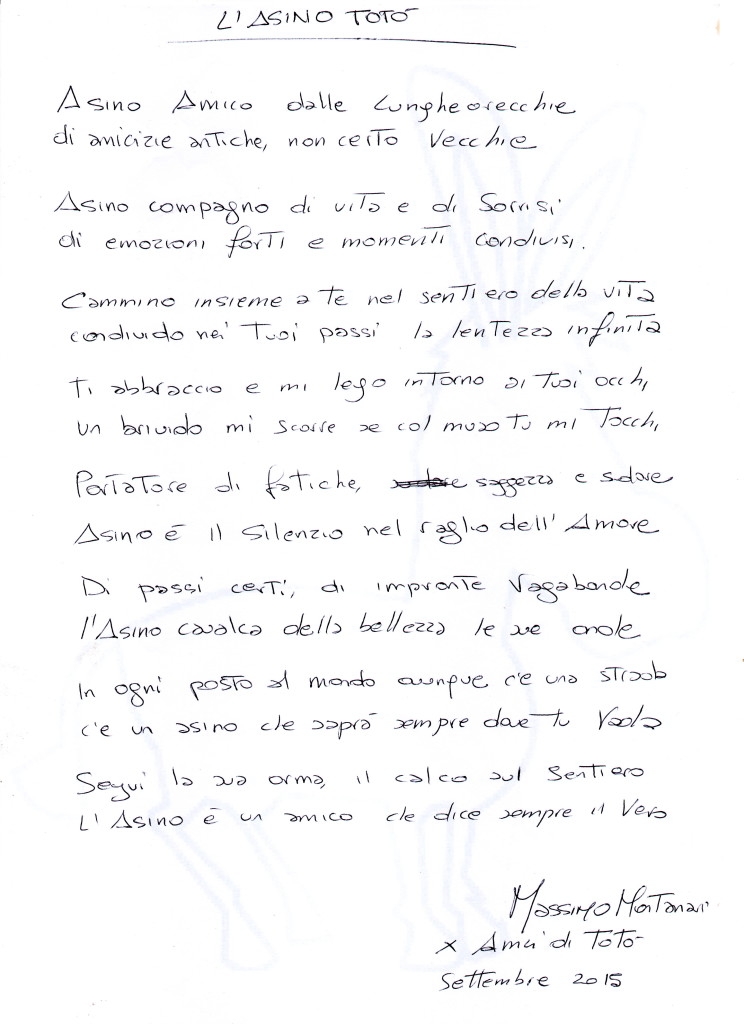 L'ASINO TOTÒ
Asino Amico dalle lunghe orecchie
di amicizie antiche, non certo Vecchie
Asino compagno di vita e di Sorrisi
di emozioni forti e momenti condivisi.
Cammino insieme a te nel sentiero della vita
condivido nei Tuoi passi la lentezza infinita
Ti abbraccio e mi lego intorno ai Tuoi occhi
un brivido mi scorre se col muso tu mi Tocchi
Portatore di fatiche, saggezza e sudore
Asino è il Silenzio nel raglio dell'Amore
Di passi certi, di impronte Vagabonde
l'Asino cavalca della bellezza le sue onde
In ogni posto al mondo ovunque c'è una strada
c'è un asino che saprà sempre dove tu Vada
Segui la sua orma, il calco sul Sentiero
L'Asino è un amico che dice sempre il Vero
Massimo Montanari
x Amici di Totò
Settembre 2015